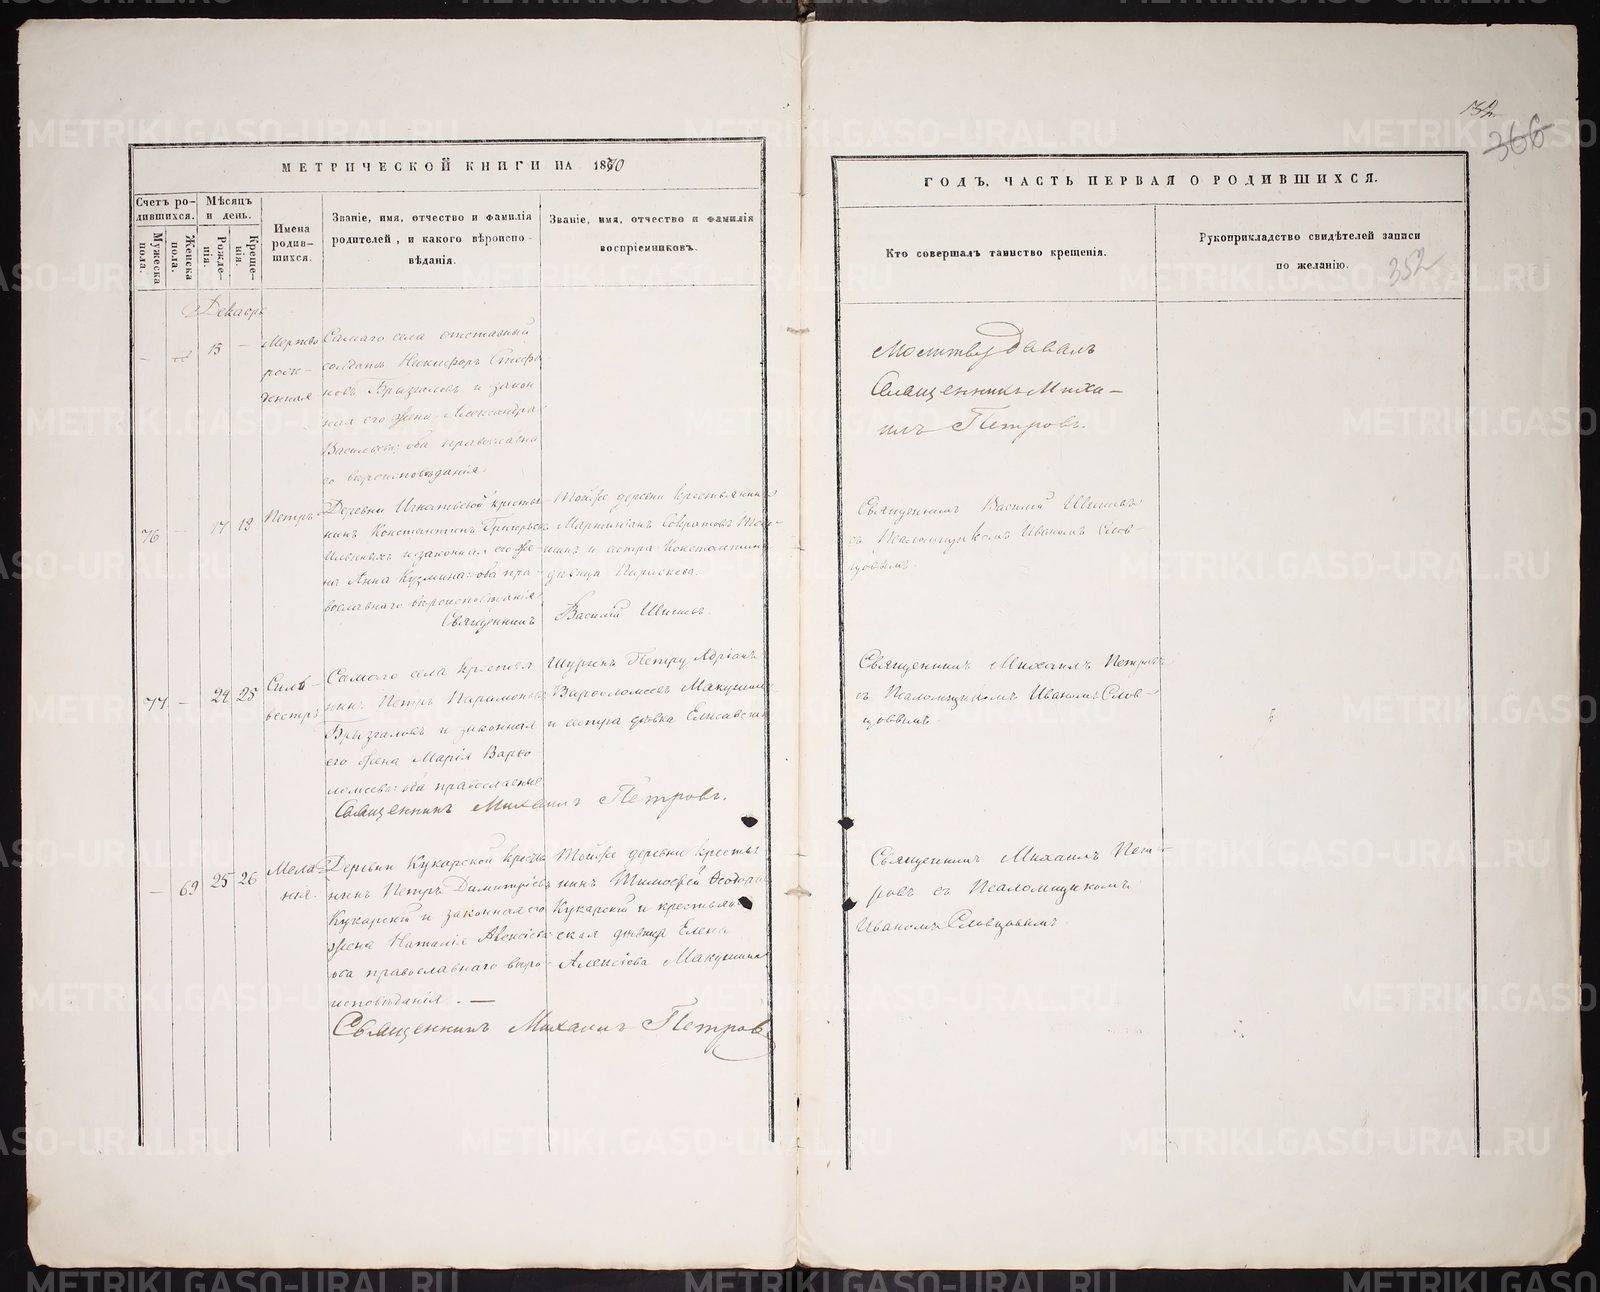 МЕТРИЧЕСКОЙ КНИГИ НА 1870
Счетъ ро-
дившихся.
Мужеска
пола.
Женска
пола.
Мѣсяцъ
и день.
Рожде-
нія.
Креще-
нія.
Имена
родив-
шихся.
Званіе, имя, отчество и фамилія
родителей, и какого вѣроиспо-
вѣданія.
Званіе, имя, отчество и фамилія
воспріемниковъ.
Декабрь
15
Мертво
рож-
денная
Самаго села отставный
солдатъ Никифоръ Стефа-
новъ Брызгаловъ и закон
ная его жена Александра
Васильева: оба православна
го вѣроисповѣданія.
76 - 17 18
Петръ
Деревни Игнатьевой крестья
нинъ Константинъ Григорьевъ
и законная его же-
на Анна Кузмина: оба пра-
вославнаго вѣроисповѣданія
Тойже деревни крестьянинъ
Мартиніанъ Сократовъ
и сестра Константина
дѣвица Параскева.
Священникъ Василій
77 - 24 25
Силь-
вестръ
Самаго села крестья
нинъ Петръ Парамоновъ
Брызгаловъ и законная
его жена Марія Варѳо
ломеева: оба православные
Шуринъ Петру Адріанъ
Варѳоломеевъ Макушинъ
и сестра дѣвка Елисавета
Священникъ Михаилъ Петровъ.
- 69 25 26
Мела-
нія.
Деревни Кукарской крестья
нинъ Петръ Димитріевъ
Кукарскій и законная его
жена Наталія Алексіева
оба православнаго вѣро-
исповѣданія. —
Тойже деревни крестья
нинъ Тимоѳей Ѳеодоровъ
Кукарскій и крестьян
ская дѣвица Елена
Алексіева Макушина
Священникъ Михаилъ Петровъ
366
ГОДЪ, ЧАСТЬ ПЕРВАЯ О РОДИВШИХСЯ.
Кто совершалъ таинство крещенія.
Рукоприкладство свидѣтелей записи
по желанію.
352
Молитву давалъ
Священникъ Миха-
илъ Петровъ.
Священникъ Василій
съ Псаломщикомъ Иваномъ Слов-
цовымъ.
Священникъ Михаилъ Петровъ
съ Псаломщикомъ Иваномъ Слов-
цовымъ.
Священникъ Михаилъ Пет-
ровъ съ Псаломщикомъ
Иваномъ Словцовымъ
METRIKI.GASO-URAL.RU